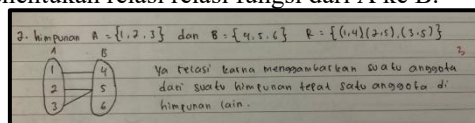 menentukan relasi relasi fungsi dari A ke B.
2. himpunan A = {1,2,3} dan B = {4,5,6} R = {(1,4)(2,5),(3,5)}
A B
1 4
2 5
3 6
Ya relasi karna menggambarkan suatu anggota
dari suatu himpunan tepat satu anggota di
himpunan lain.